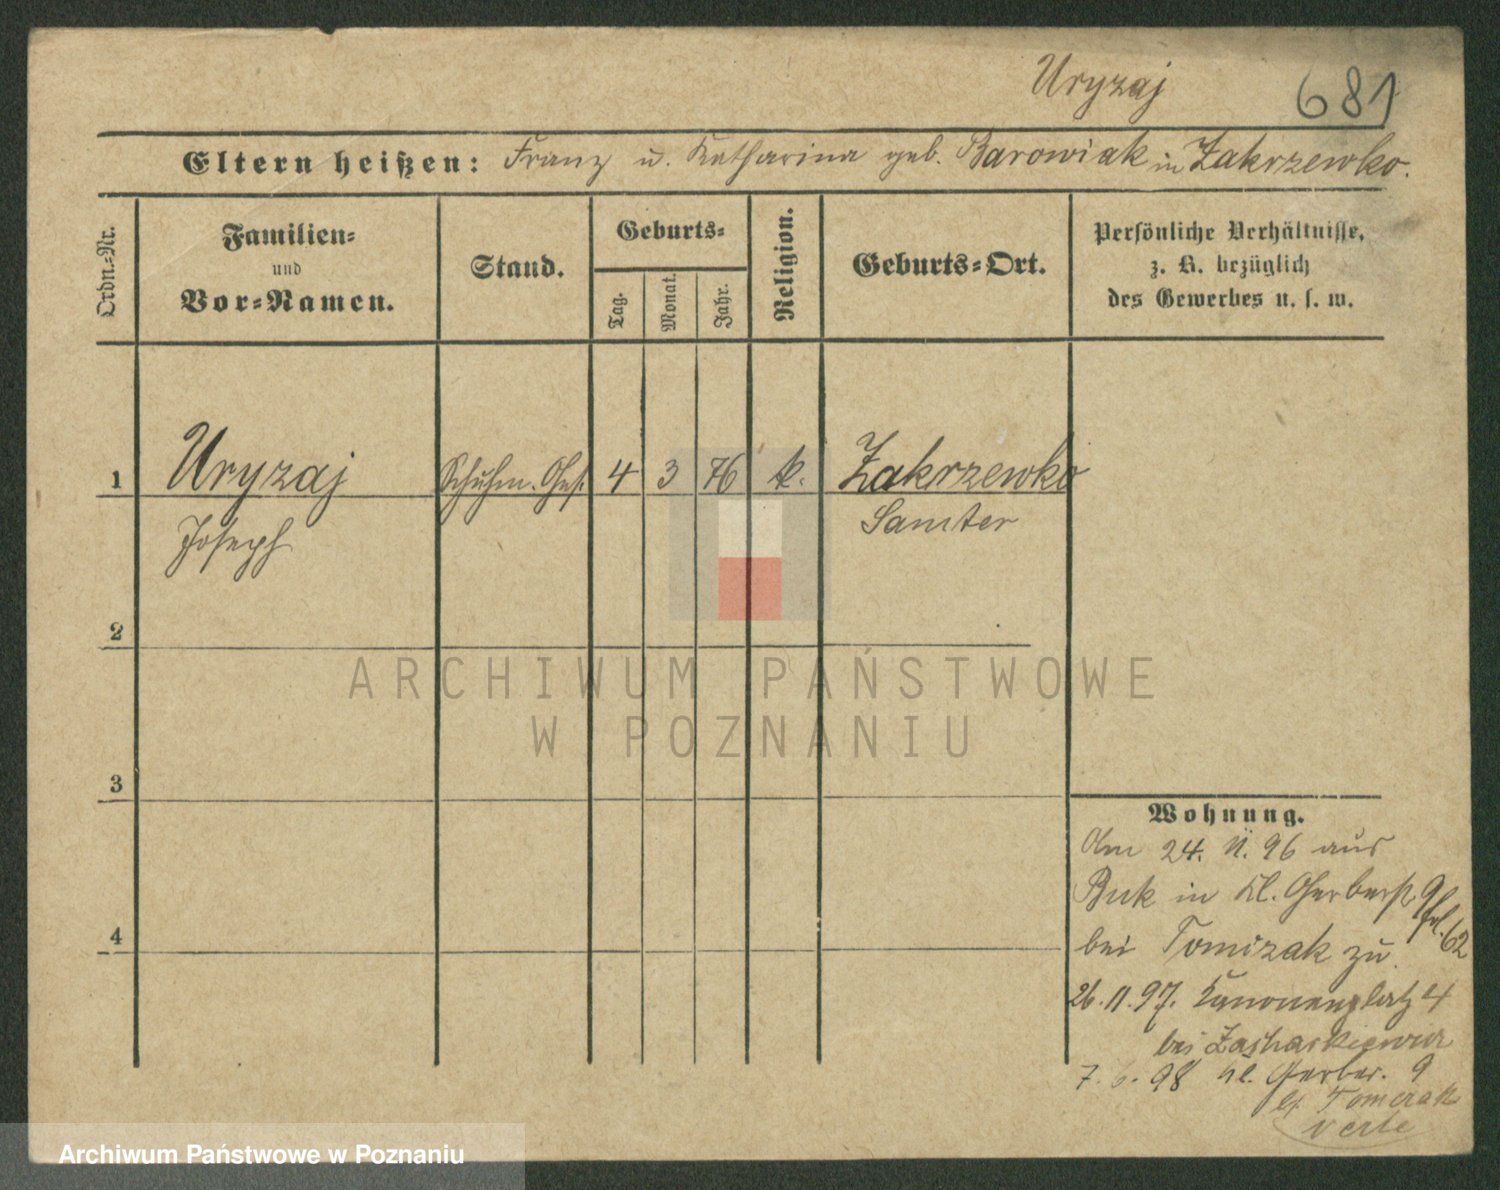 Uryzaj 681
Eltern heißen: Franz u. Katharina geb. Barowiak in Zakrzewko.
Ordn.-Nr.
Familien-
und
Vor-Namen.
Stand.
Geburts-
Tag.
Monat.
Jahr.
Religion.
Geburts-Ort.
Persönliche Verhältnisse,
z. B. bezüglich
des Gewerbes u. s. w.
1 Uryzaj Schuhm. Ges. 4 3 76 k. Zakrzewko
Joseph Samter
2
3
4
Wohnung.
Am 24. 11. 96 aus
Buk in kl. Gerberst. 9
fol. 62
bei Tomczak zu
26.11.97. Kanonenplatz 4
bei
7. 6. 98 kl. Gerber. 9
bei Tomczak
verte
ARCHIWUM PAŃSTWOWE
W POZNANIU
Archiwum Państwowe w Poznaniu